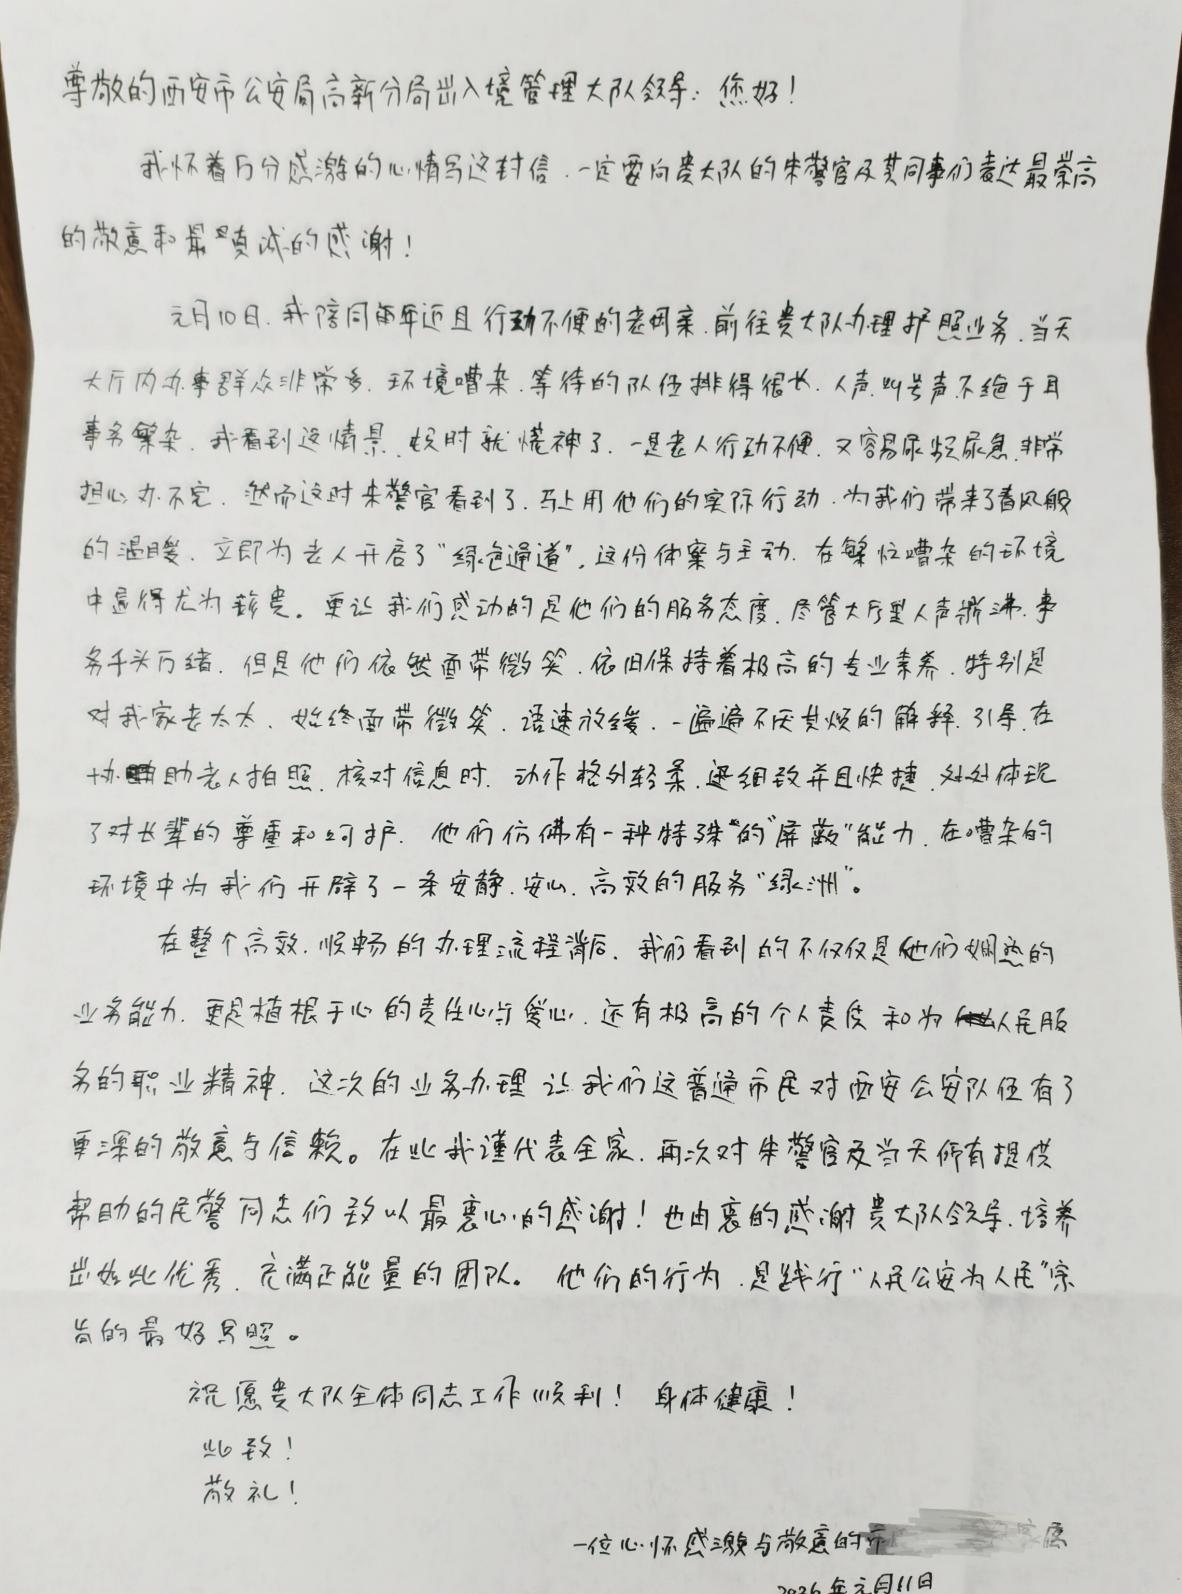 尊敬的西安市公安局高新分局出入境管理大队领导：您好！
我怀着万分感激的心情写这封信，一定要向贵大队的朱警官及其同事们表达最崇高
的敬意和最真诚的感谢！
元月10日，我陪同年迈且行动不便的老母亲，前往贵大队办理护照业务，当天
大厅内办事群众非常多，环境嘈杂，等待的队伍排得很长，人声，叫号声不绝于耳
事务繁杂，我看到这情景，顿时就慌神了，一是老人行动不便，又容易尿频尿急，非常
担心办不完，然而这时朱警官看到了，马上用他们的实际行动，为我们带来了春风般
的温暖，立即为老人开启了“绿色通道”。这份体察与主动，在繁忙嘈杂的环境
中显得尤为珍贵。更让我们感动的是他们的服务态度，尽管大厅里人声鼎沸，事
务千头万绪，但是他们依然面带微笑，依旧保持着极高的专业素养，特别是
对我家老太太，始终面带微笑，语速放缓，一遍遍不厌其烦的解释，引导，在
协助老人拍照，核对信息时，动作格外轻柔，细致并且快捷，处处体现
了对长辈的尊重和呵护，他们仿佛有一种特殊的“屏蔽”能力，在嘈杂的
环境中为我们开辟了一条安静，安心，高效的服务“绿洲”。
在整个高效，顺畅的办理流程背后，我们看到的不仅仅是他们娴熟的
业务能力，更是植根于心的责任心与爱心，还有极高的个人责任和为人民服
务的职业精神，这次的业务办理让我们这普通市民对西安公安队伍有了
更深的敬意与信赖。在此我谨代表全家，再次对朱警官及当天所有提供
帮助的民警同志们致以最衷心的感谢！也由衷的感谢贵大队领导，培养
出如此优秀，充满正能量的团队。他们的行为，是践行“人民公安为人民”宗
旨的最好写照。
祝愿贵大队全体同志工作顺利！身体健康！
此致！
敬礼！
一位心怀感激与敬意的市 家属
2026年元月11日